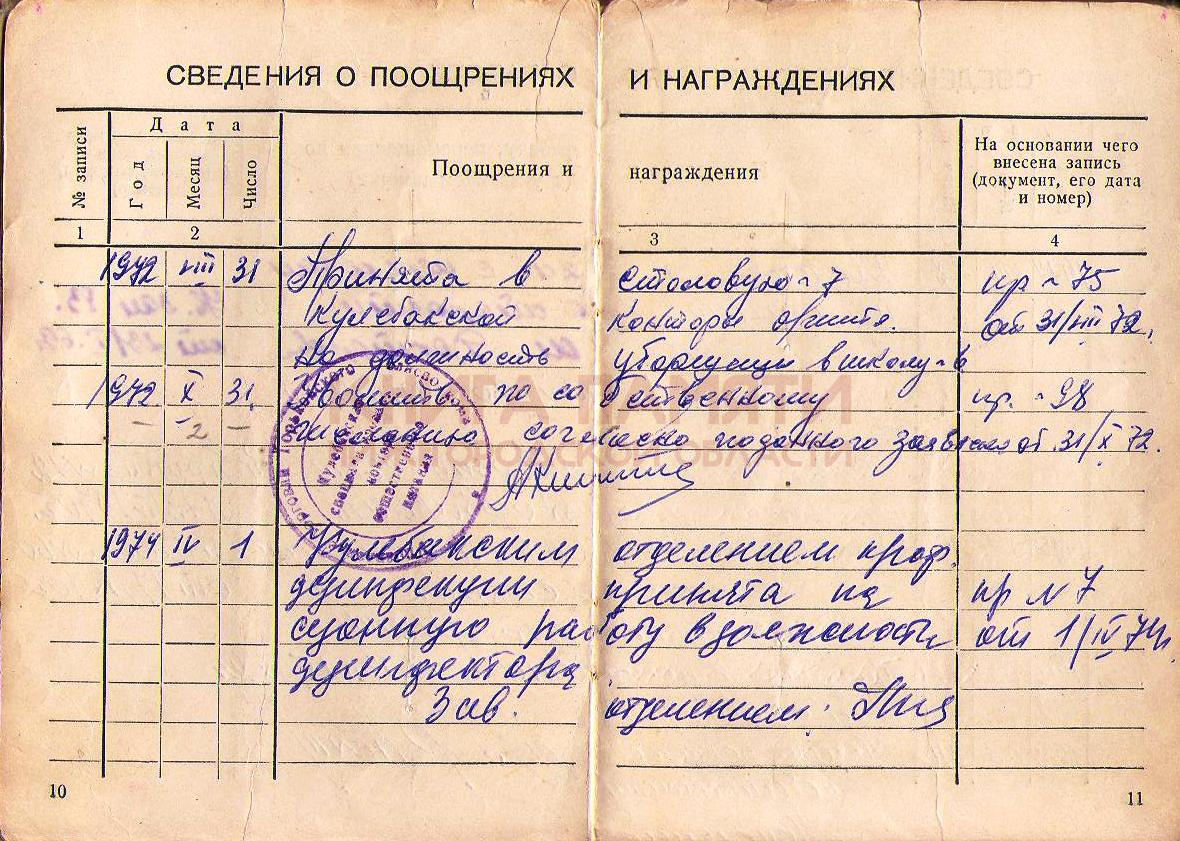 СВЕДЕНИЯ О ПООЩРЕНИЯХ И НАГРАЖДЕНИЯХ
№ записи
Дата
Год
Месяц
Число
Поощрения и награждения
На основании чего
внесена запись
(документ, его дата
и номер)
1 2 3 4
1972 VIII 31 Принята в столовую 7 пр 75
Кулебакской конторы от 31/VIII 72.
на должность уборщицы в школу 6
1972 X 31 по собственному пр. 98
2 желанию согласно поданного от 31/X 72.
КНИГА ПАМЯТИ
НИЖЕГОРОДСКОЙ ОБЛАСТИ
1974 IV 1 Кулебакским отделением проф.
дезинфекции принята на пр N 7
работу в должности от 1/IV 74г.
дезинфектора
Зав. отделением.
10
11